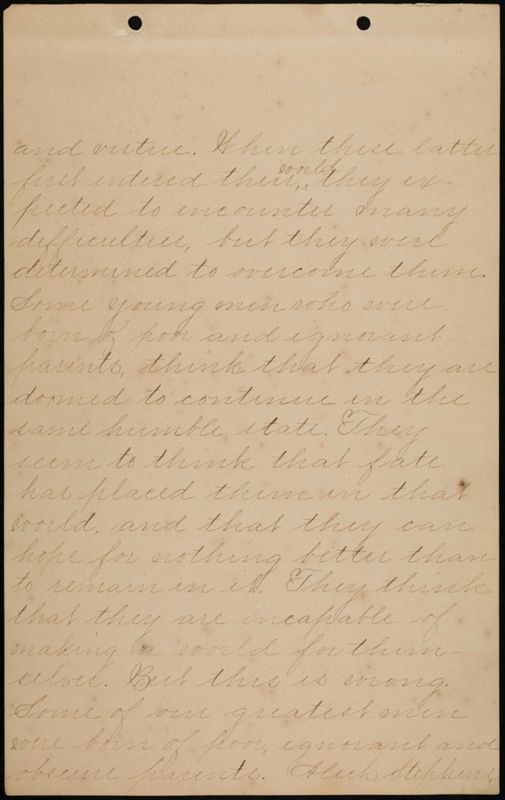 and virtue. When these latter
first entered their world, they ex-
pected to encounter many
difficulties, but they were
determined to overcome them.
Some young men who were
born of poor and ignorant
parents, think that they are
doomed to continue in the
same humble state. They
seem to think that fate
has placed them in that
world, and that they can
hope for nothing better than
to remain in it. They think
that they are incapable of
making a world for them-
selves. But this is wrong.
Some of our greatest men
were born of poor, ignorant and
obscure parents. Aleck Stephens,